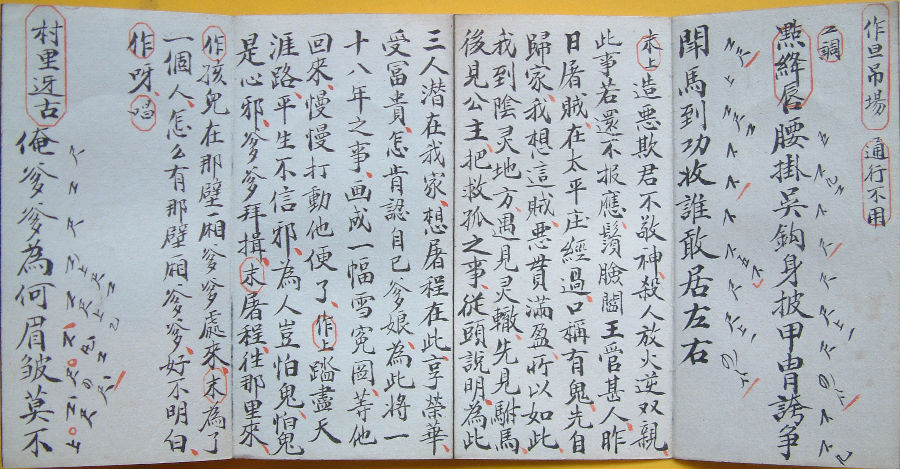 作旦吊場 通行不用
工調
點絳唇腰掛吳鈎身披甲冑誇爭
聞馬到功收誰敢居左右
末上造悪欺君不敬神殺人放火逆双親
此事若還不报應鬚臉閻王官甚人昨
日屠賊在太平庄經過口稱有鬼先自
歸家我想這賊悪貫滿盈所以如此
我到陰灵地方遇見灵轍先見駙馬
後見公主把救孤之事從頭說明為此
三人潜在我家想屠程在此享荣華
受富貴怎肯認自己爹娘為此将一
十八年之事画成一幅雪冤图等他
回來慢慢打動他便了作上踏盡天
涯路平生不信邪為人豈怕鬼怕鬼
是心邪爹爹拜揖末屠程往那里來
作孩兒在那壁廂爹爹處來末為了
一個人怎么有那壁廂爹爹好不明白
作呀唱
村里迓古俺爹爹為何眉皱莫不